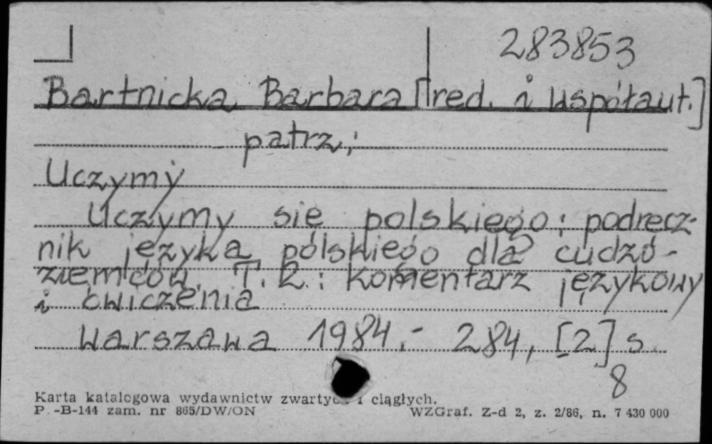 283853
Bartnicka Barbara [red. i współaut.]
patrz:
Uczymy
Uczymy się polskiego: podręcz-
nik języka polskiego dla cudzo-
ziemców. T. 2.: komentarz językowy
i ćwiczenia
Warszawa 1984.- 284, [2] s.
8
Karta katalogowa wydawnictw zwartych i ciągłych.
P.-B-144 zam. nr 865/DW/ON WZGraf. Z-d 2, z. 2/86, n. 7 430 000